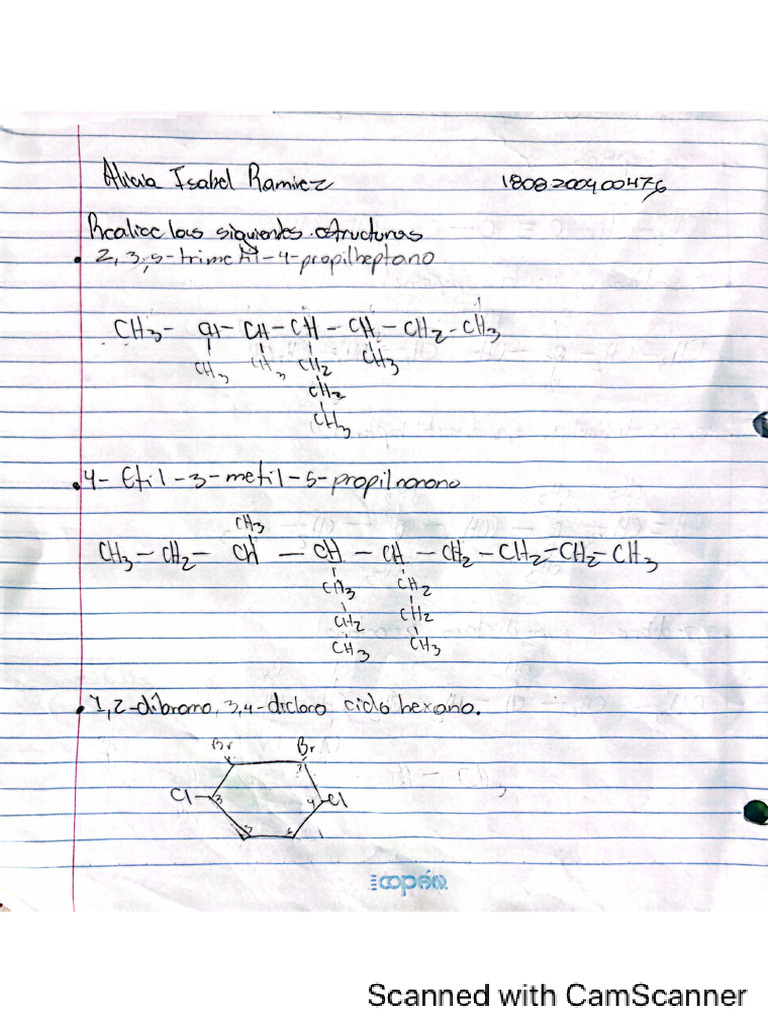 Isabel Ramirez 1808200400476
Realice las siguientes estructuras
• 2,3,5-trimetil-4-propilheptano
CH3- CH- CH-CH - CH - CH2-CH3
CH3 CH3 CH2 CH3
CH2
CH3
• 4- Etil-3-metil-5-propilnonano
CH3
CH3-CH2- CH - CH - CH - CH2-CH2-CH2-CH3
CH3 CH2
CH2 CH2
CH3 CH3
• 1,2-dibromo, 3,4-dicloro ciclo hexano.
Br Br
2
Cl 3 4 Cl
copán
Scanned with CamScanner